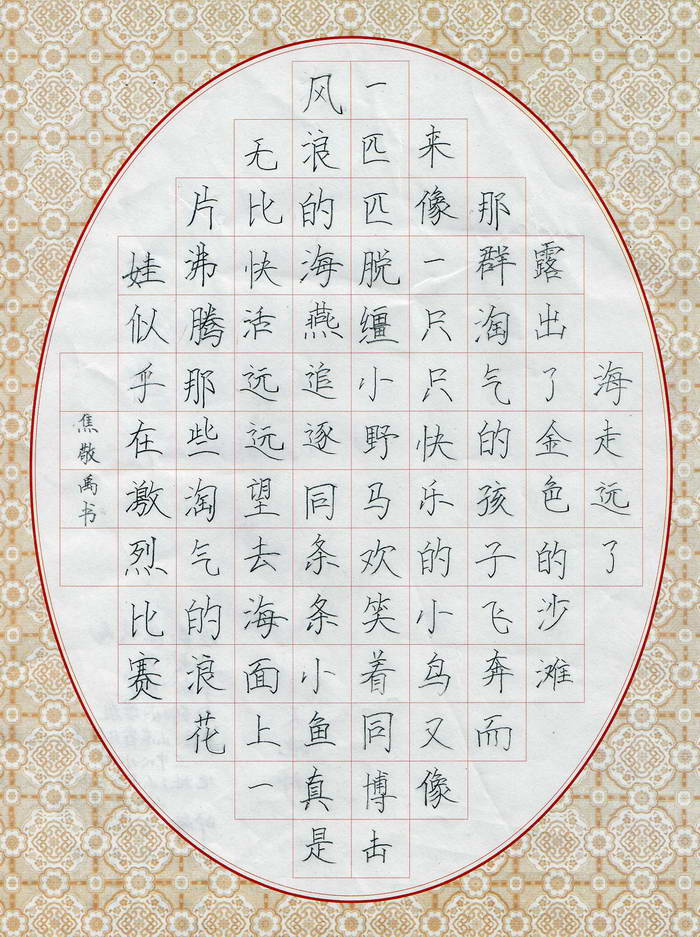 海走远了
露出了金色的沙滩
那群淘气的孩子飞奔而
来像一只只快乐的小鸟又像
一匹匹脱缰小野马欢笑着同博击
风浪的海燕追逐同条条小鱼真是
无比快活远远望去海面上一
片沸腾那些淘气的浪花
娃似乎在激烈比赛
焦敬禹书